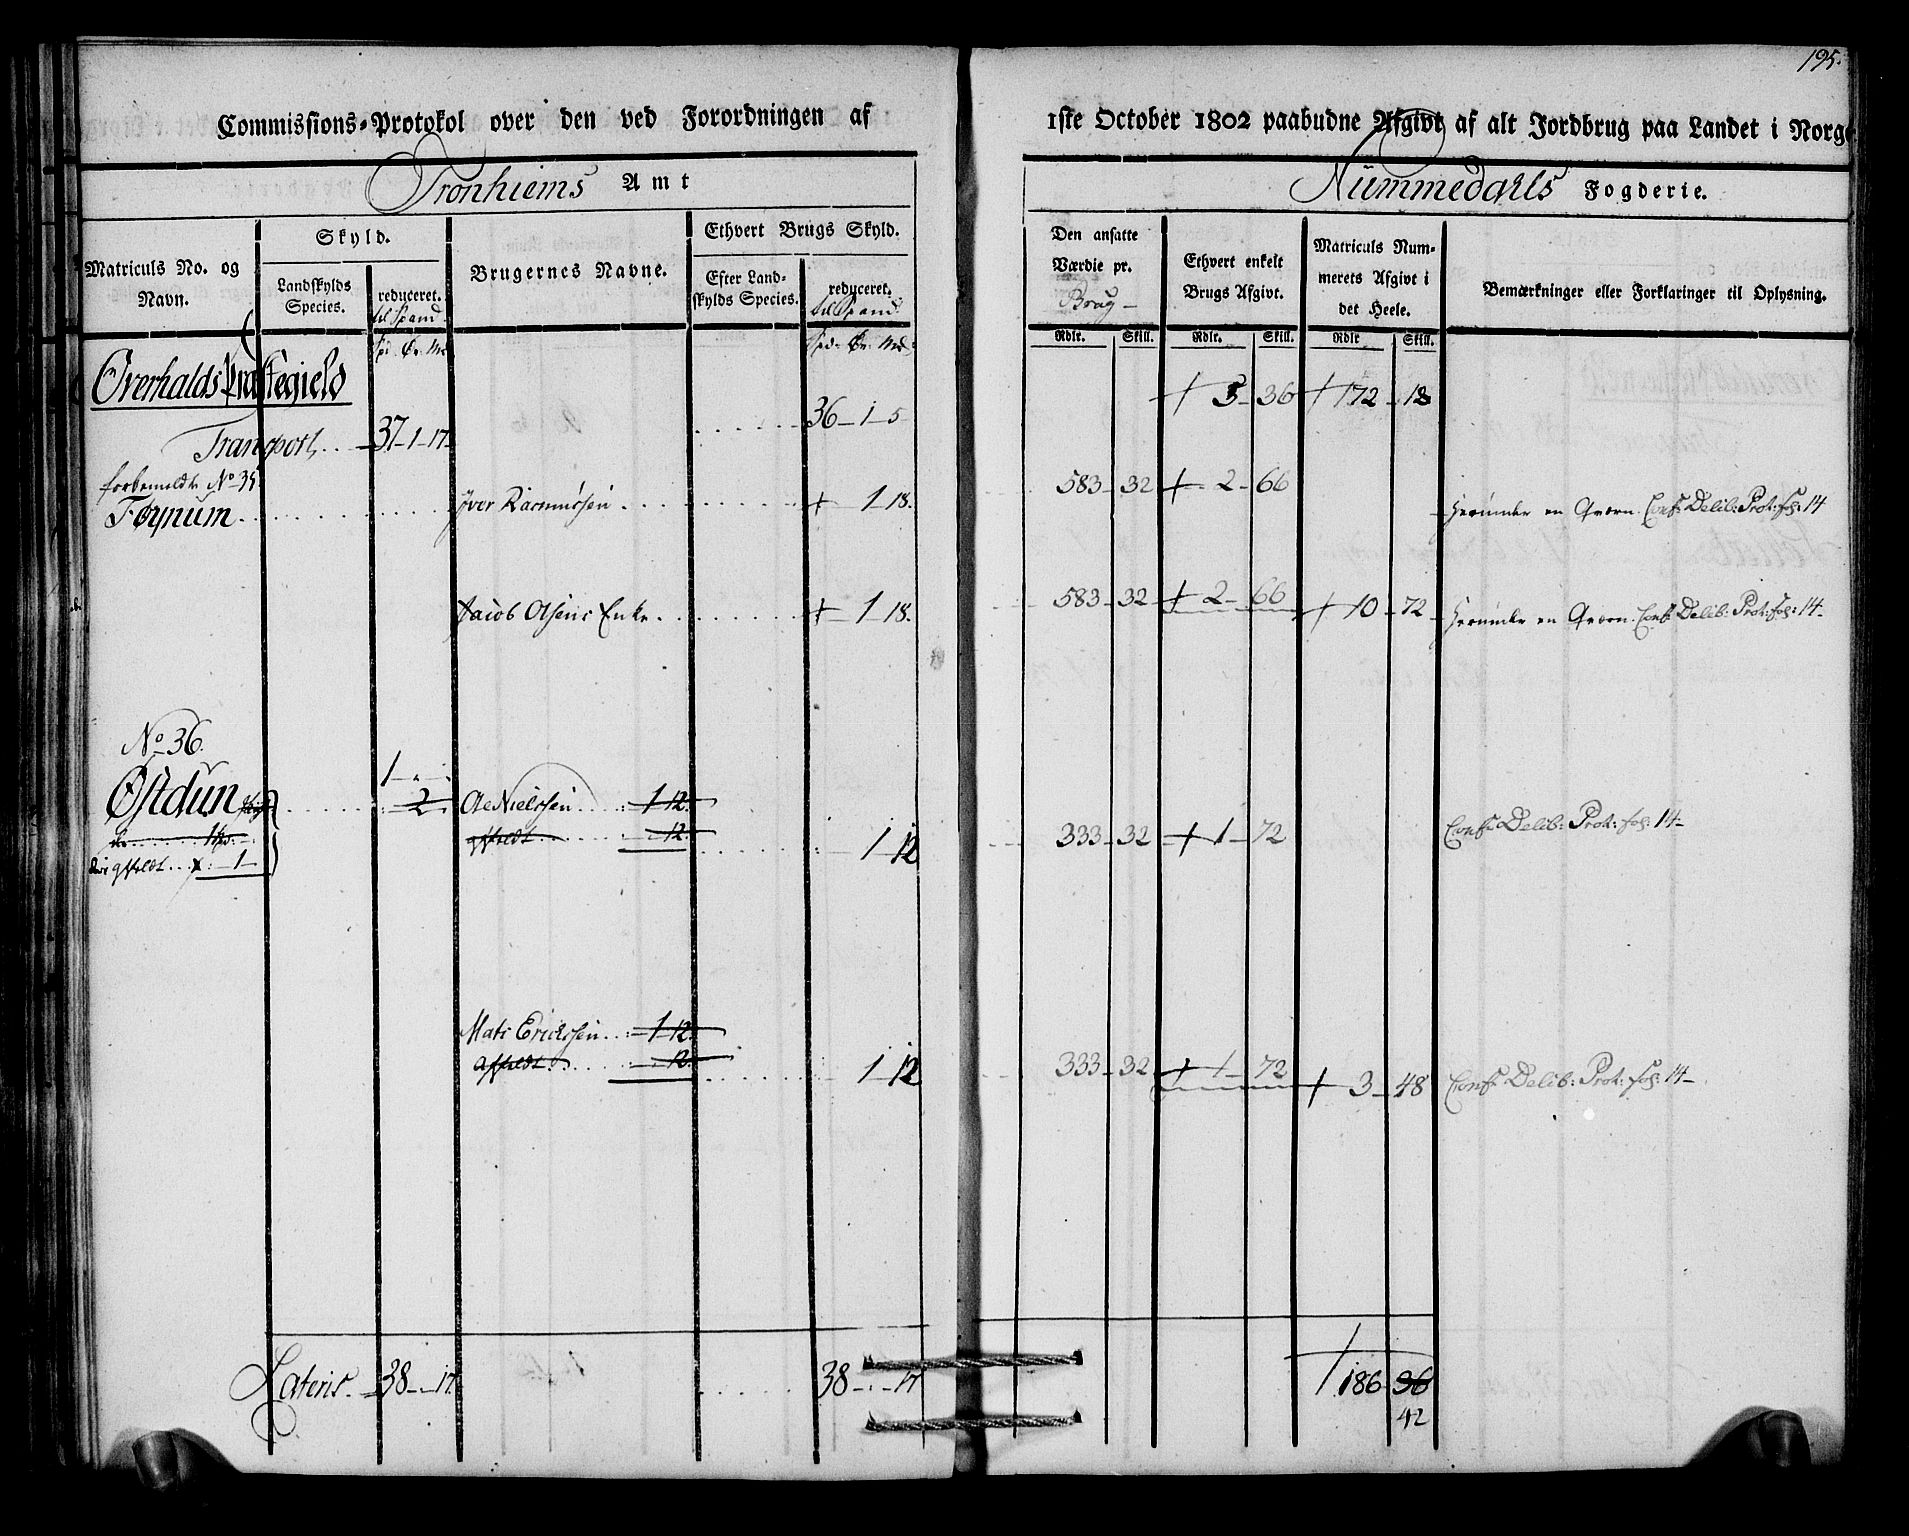 195.
Commissions-Protokol over den ved Forordningen af 1ste October 1802 paabudne Afgivt af alt Jordbrug paa Landet i Norge
Tronhiems Amt
Nummedahls Fogderie.
Matriculs No. og Navn.
Skyld.
Landskylds Species.
reduceret.
til Spand
Brugernes Navne.
Ethvert Brugs Skyld.
Efter Landskylds Species.
reduceret.
til Spand
Den ansatte Værdie pr.
Brug
Ethvert enkelt Brugs Afgivt.
Matriculs Nummerets Afgivt i det Heele.
Bemærkninger eller Forklaringer til Oplysning.
Rdlr. Skill. Rdlr. Skill. Rdlr Skill.
Overhalds Præstegield
+ 3 - 36 + 172 - 18
Transport, . . 37 - 1 - 17. 36 - 1 - 5
forbemeldte No 35
Føynum Iver Rasmussen + 1 - 18. 583 - 32 + 2 - 66 herunder en Qværn. Conf: Delib: Prot: fol: 14
Jacob Olsens Enke + 1 - 18. 583 - 32 + 2 - 66 + 10 - 72 herunder en Qværn. Conf: Delib: Prot: fol: 14 -
No 36.
1 - " -
Østdun 2 Ole Nielssen 1 - 12
affældt 12. 1 - 12 333 - 32 + 1 - 72 Conf: Delib: Prot: fol: 14 -
affældt 1 -
Mats Erichssen 1 - 12.
affældt 12. 1 - 12 333 - 32 + 1 - 72 + 3 - 48 Conf: Delib: Prot: fol: 14 -
Lateris. 38 - " - 17. 38 - " - 17 186 36
42